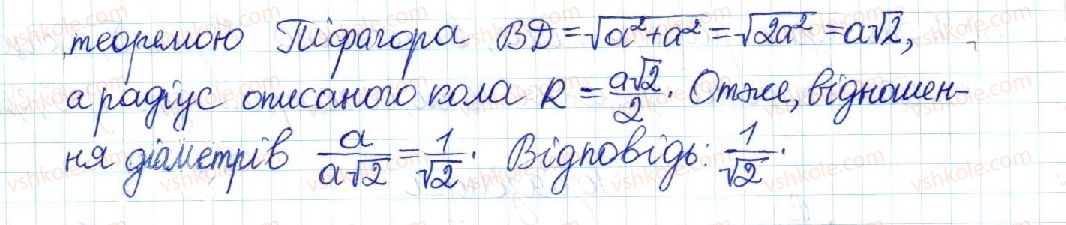 теоремою Піфагора BD = √a²+a² = √2a² = a√2,
а радіус описаного кола R = a√2/2. Отже, відношен-
ня діаметрів a/a√2 = 1/√2. Відповідь: 1/√2.